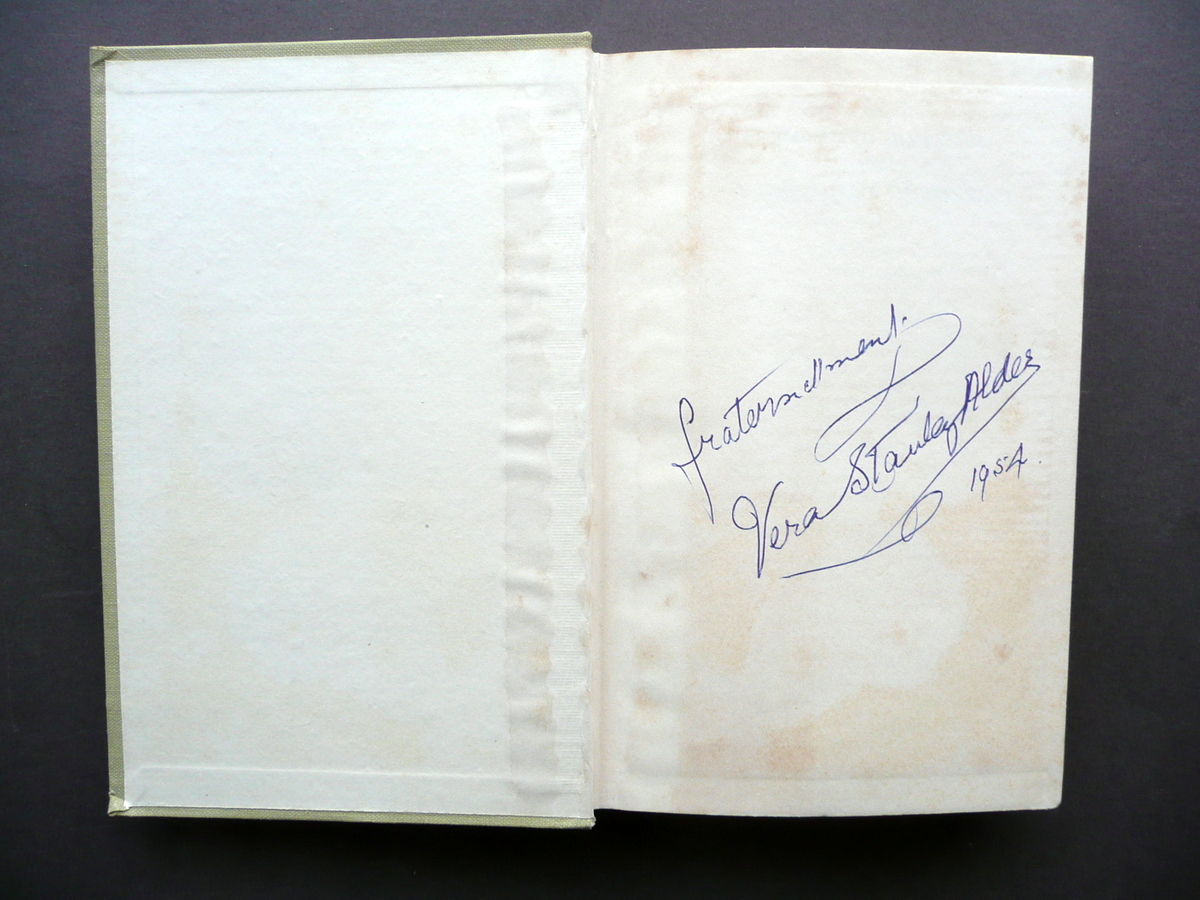 fraternellment.
Vera Stanley Alder
1954.